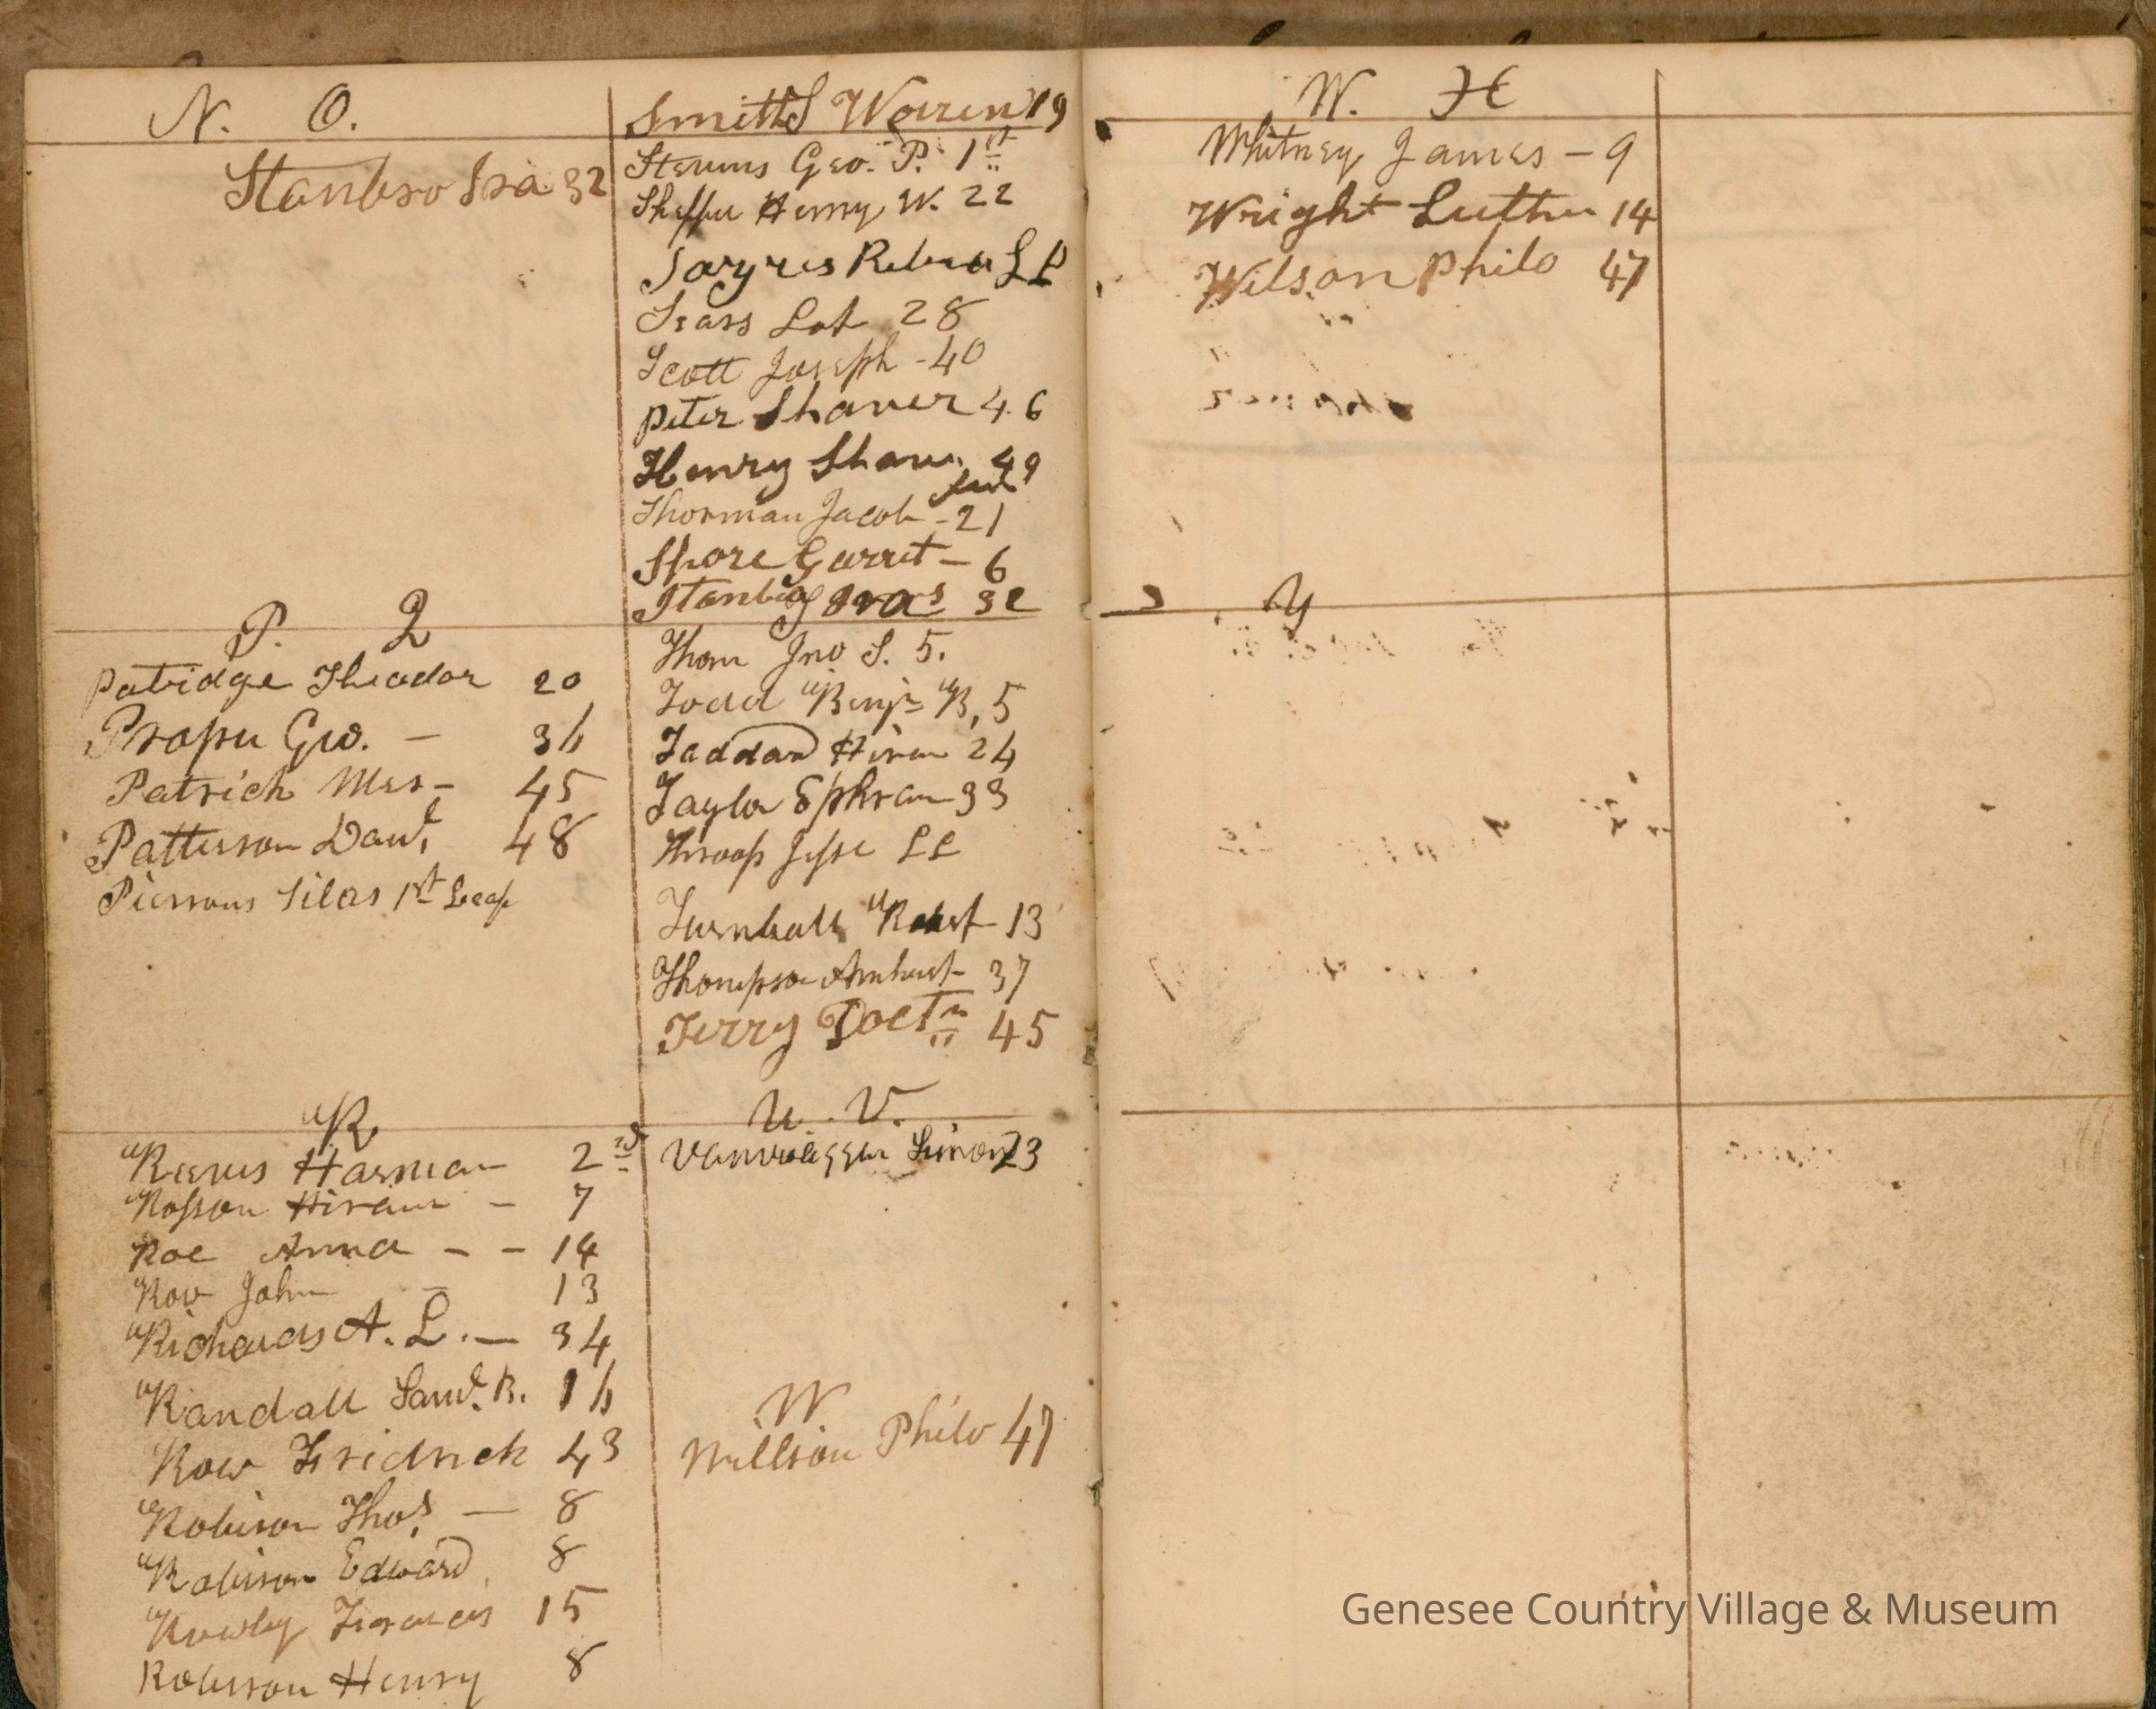 N. O.
Stanbro Ira 32
P. Q
Patridge Theodor 20
Proper Geo. — 36
Patrich Mrs - 45
Patterson Danl. 48
Piersons Silas 1st Leaf
R
Reeves Harman 2nd
Rosson Hiram - 7
Roe Anna - - 14
Row John - 13
Richards A. L. — 34
Randall Saml. R. 16
Row Fredrick 43
Robison Thos. — 8
Robison Edward 8
Rowley Frances 15
Robison Henry 8
Smith Warren 19
Sterns Geo. P. 1st
Henry W. 22
Sayres LL
Sears Lot 28
Scott Joseph - 40
Peter Shaver 46
Henry Shaver 49
Jacob - 21
Shore Garret - 6
Ira 32
Thom Jno S. 5.
Todd Benjn B, 5
Hiram 24
Taylor Ephram 33
Throop Jesse LL
Turnbull Robert 13
Thompson 37
Terry Doctr 45
U. V.
Simon 23
W.
Willson Philo 47
W. X
Whitney James - 9
Wright Luther 14
Wilson Philo 47
Y
Genesee Country Village & Museum